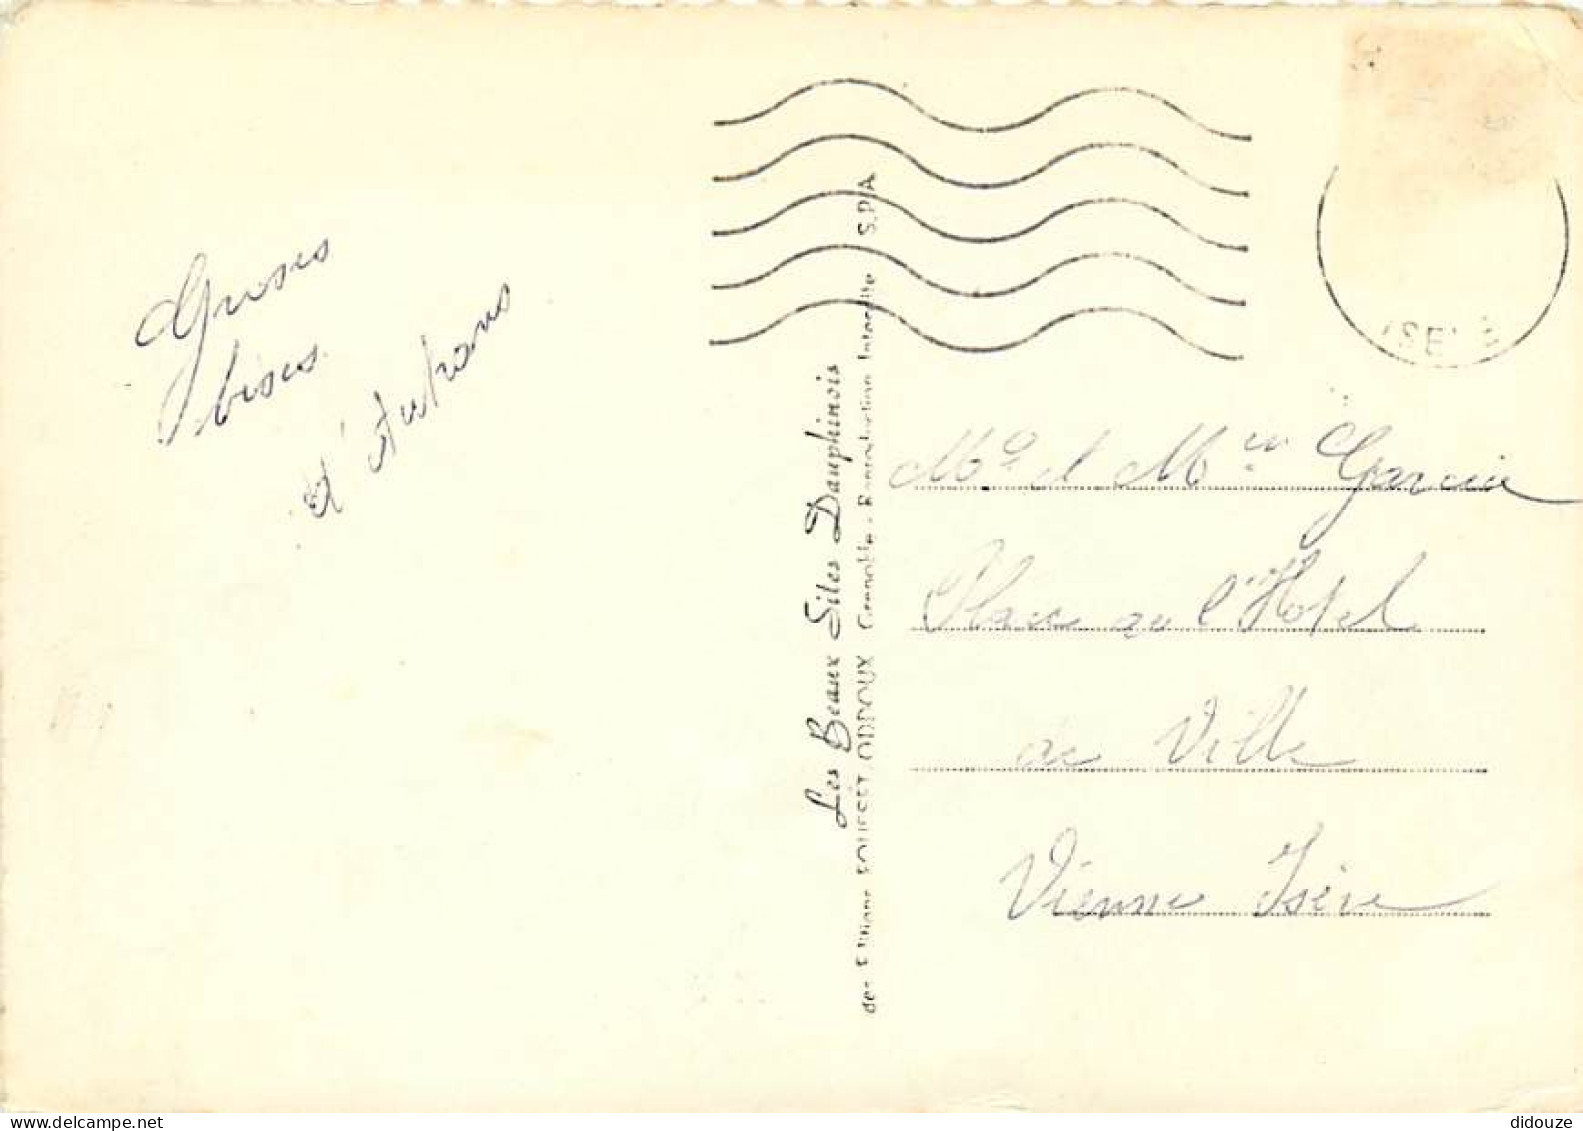 Groses
bises
d'Autrans
Les Beaux Sites Dauphinois
des Editions FOURSET ODDOUX Grenoble - Reproduction Interdite S.P.A
ISERE
Mr et Mm Garcin
Place de l'Hotel
de Ville
Vienne Isère
delcampe.net
didouze